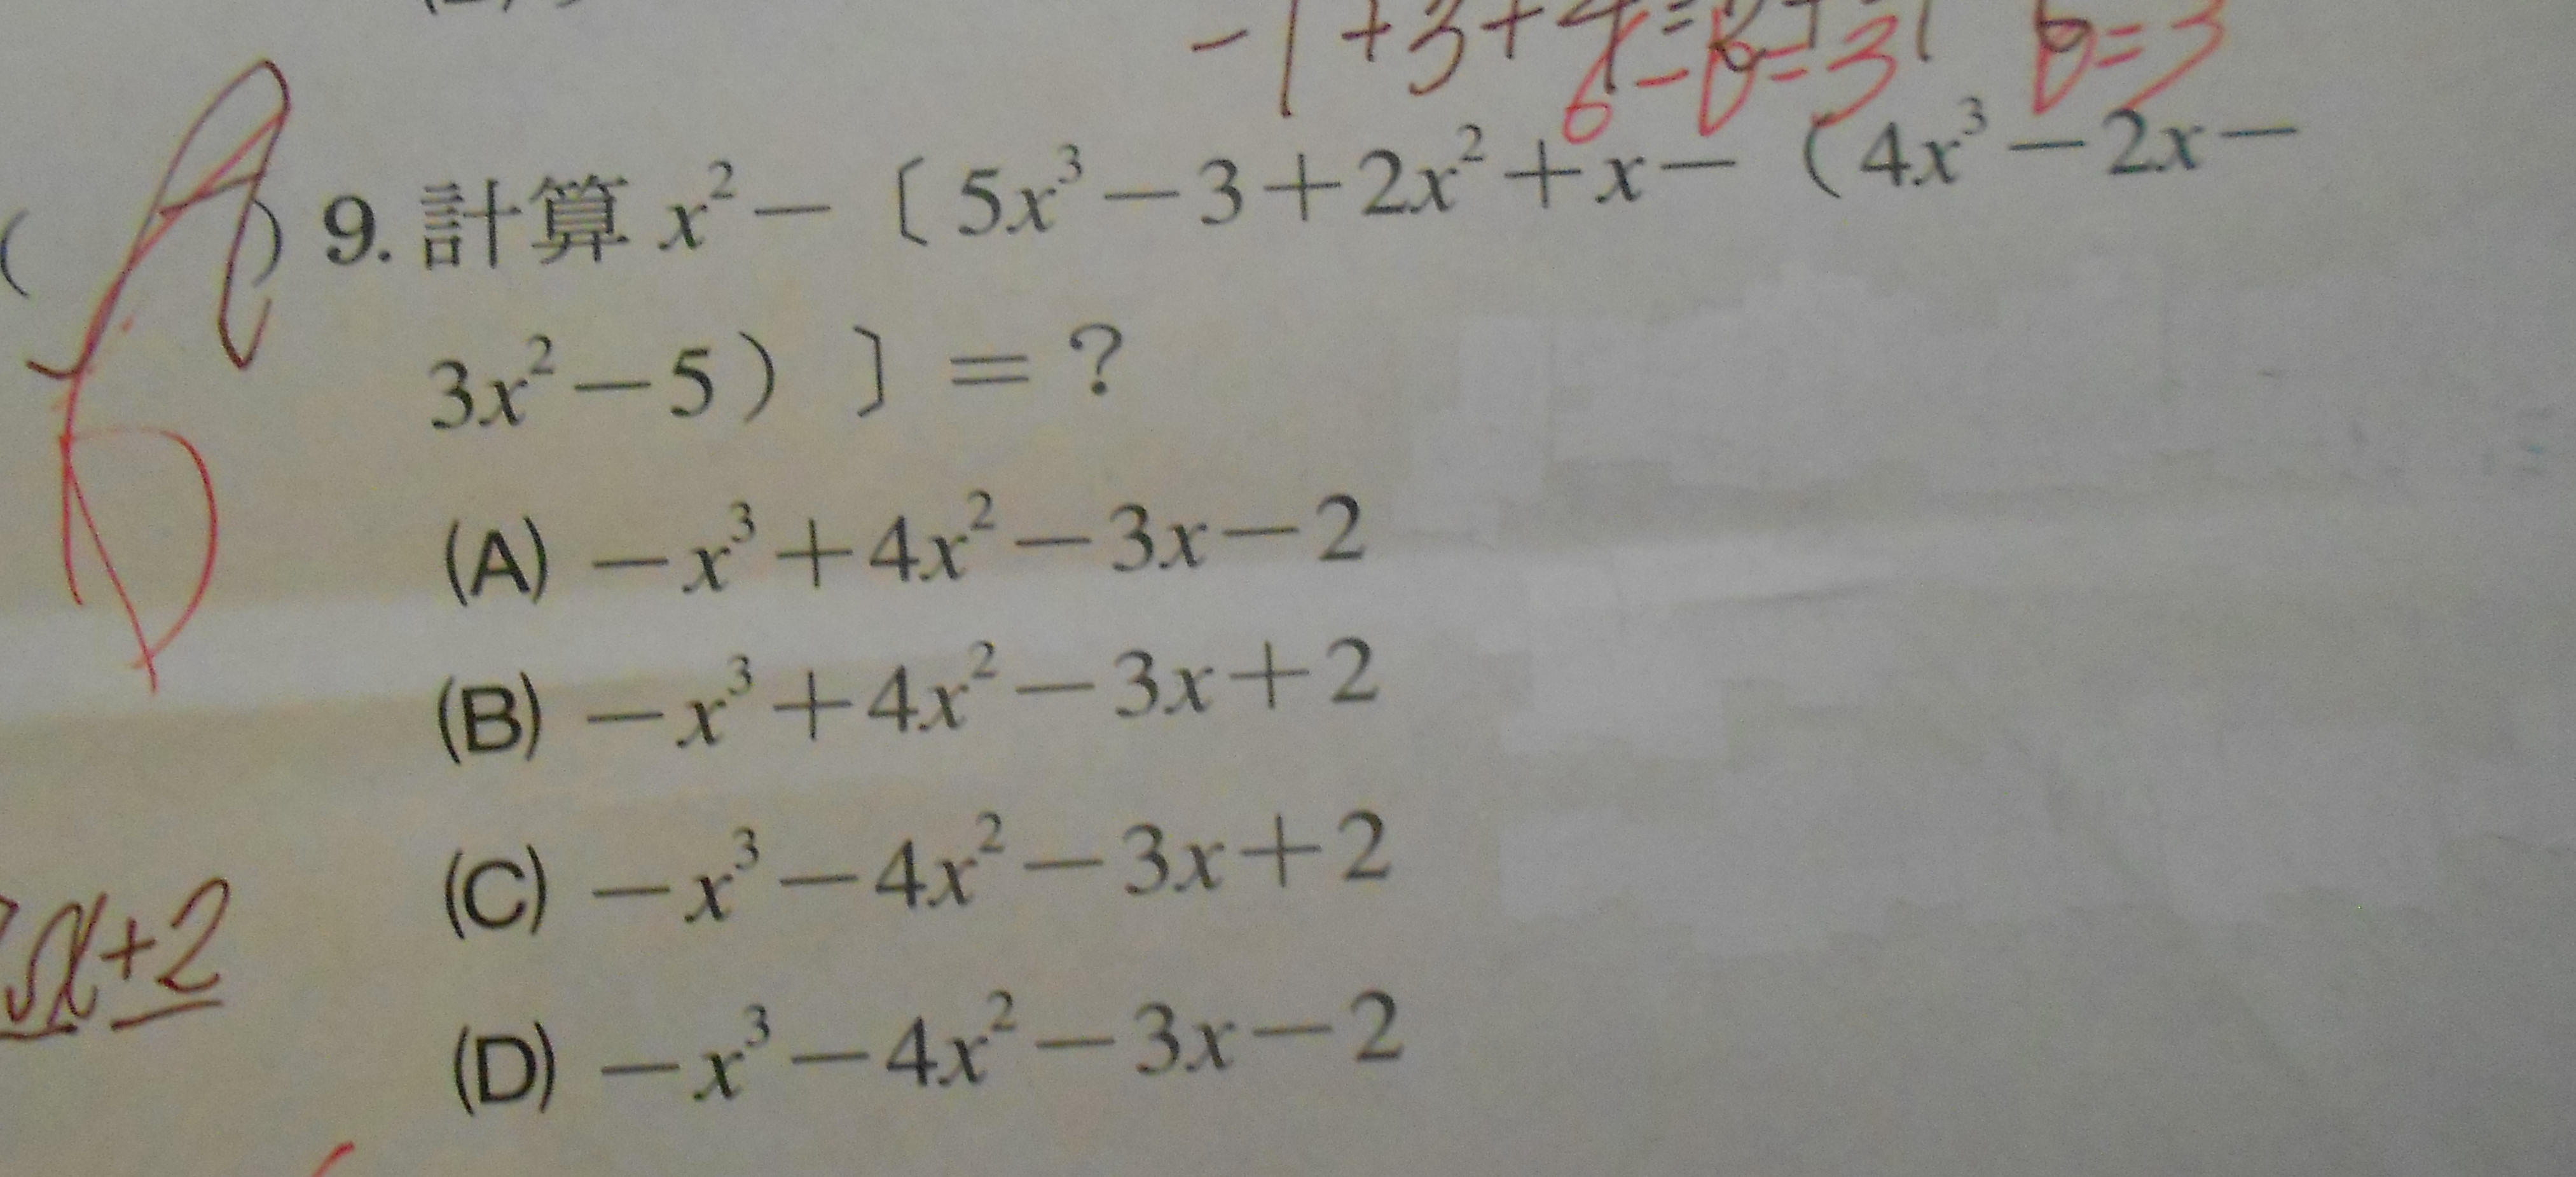 -1+3+4=
6-b=3 b=3
( A ) 9. 計算 x²-〔5x³-3+2x²+x-(4x³-2x-
3x²-5)〕=?
D
(A) -x³+4x²-3x-2
(B) -x³+4x²-3x+2
(C) -x³-4x²-3x+2
x+2
(D) -x³-4x²-3x-2